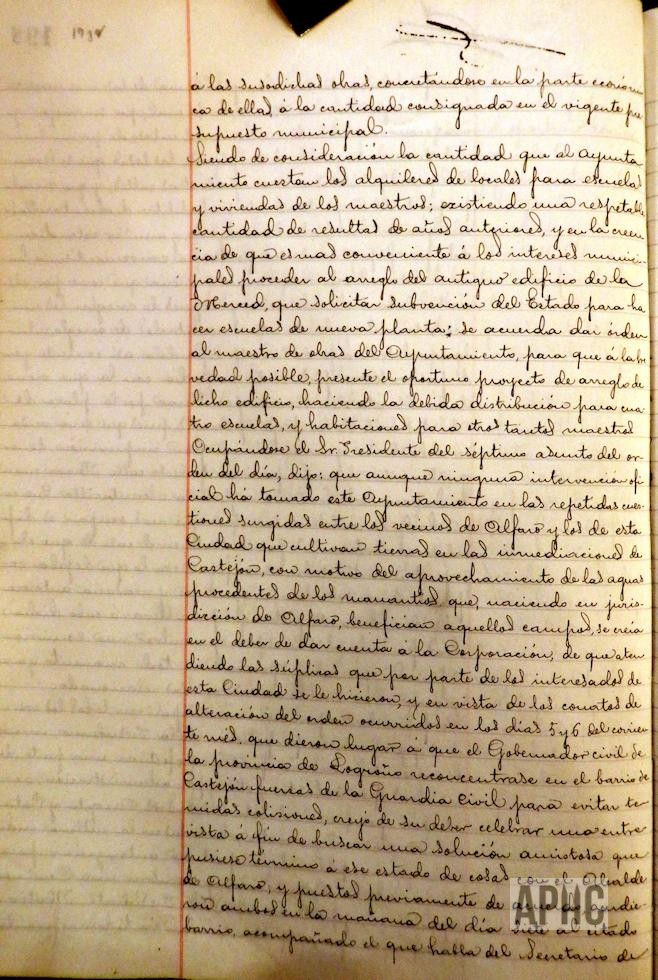 á las susodichas obras, concretándose en la parte económi
ca de ellas, á la cantidad consignada en el vigente pre
supuesto municipal.
Siendo de consideración la cantidad que al Ayunta
miento cuestan los alquileres de locales para escuelas
y viviendas de los maestros; existiendo una respetable
cantidad de resultas de años anteriores, y en la creen
cia de que es mas conveniente á los intereses munici-
pales proceder al arreglo del antiguo edificio de la
Merced, que solicitar subvención del Estado para ha
cer escuelas de nueva planta; se acuerda dar órden
al maestro de obras del Ayuntamiento, para que á la bre
vedad posible, presente el oportuno proyecto de arreglo de
dicho edificio, haciendo la debida distribución para cua
tro escuelas, y habitaciones para otros tantos maestros
Ocupándose el Sr. Presidente del séptimo asunto del or-
den del día, dijo: que aunque ninguna intervención ofi
cial ha tomado este Ayuntamiento en las repetidas cues-
tiones surgidas entre los vecinos de Alfaro y los de esta
Ciudad que cultivan tierras en las inmediaciones de
Castejón, con motivo del aprovechamiento de las aguas
procedentes de los manantios que, naciendo en juris-
dicción de Alfaro, benefician aquellos campos, se creía
en el deber de dar cuenta á la Corporación, de que aten
diendo las súplicas que por parte de los interesados de
esta Ciudad se le hicieron, y en vista de los conatos de
alteración del orden ocurridos en los días 5 y 6 del corrien
te mes, que dieron lugar á que el Gobernador civil de
la provincia de Logroño reconcentrase en el barrio de
Castejón fuerzas de la Guardia Civil para evitar te
midas colisiones, creyó de su deber celebrar una entre
vista á fin de buscar una solución amistosa que
pusiese término á ese estado de cosas con el Alcalde
de Alfaro, y puestos previamente de acuerdo acudie
ron ambos en la mañana del día siete al citado
barrio, acompañado el que habla del Secretario de
APHC